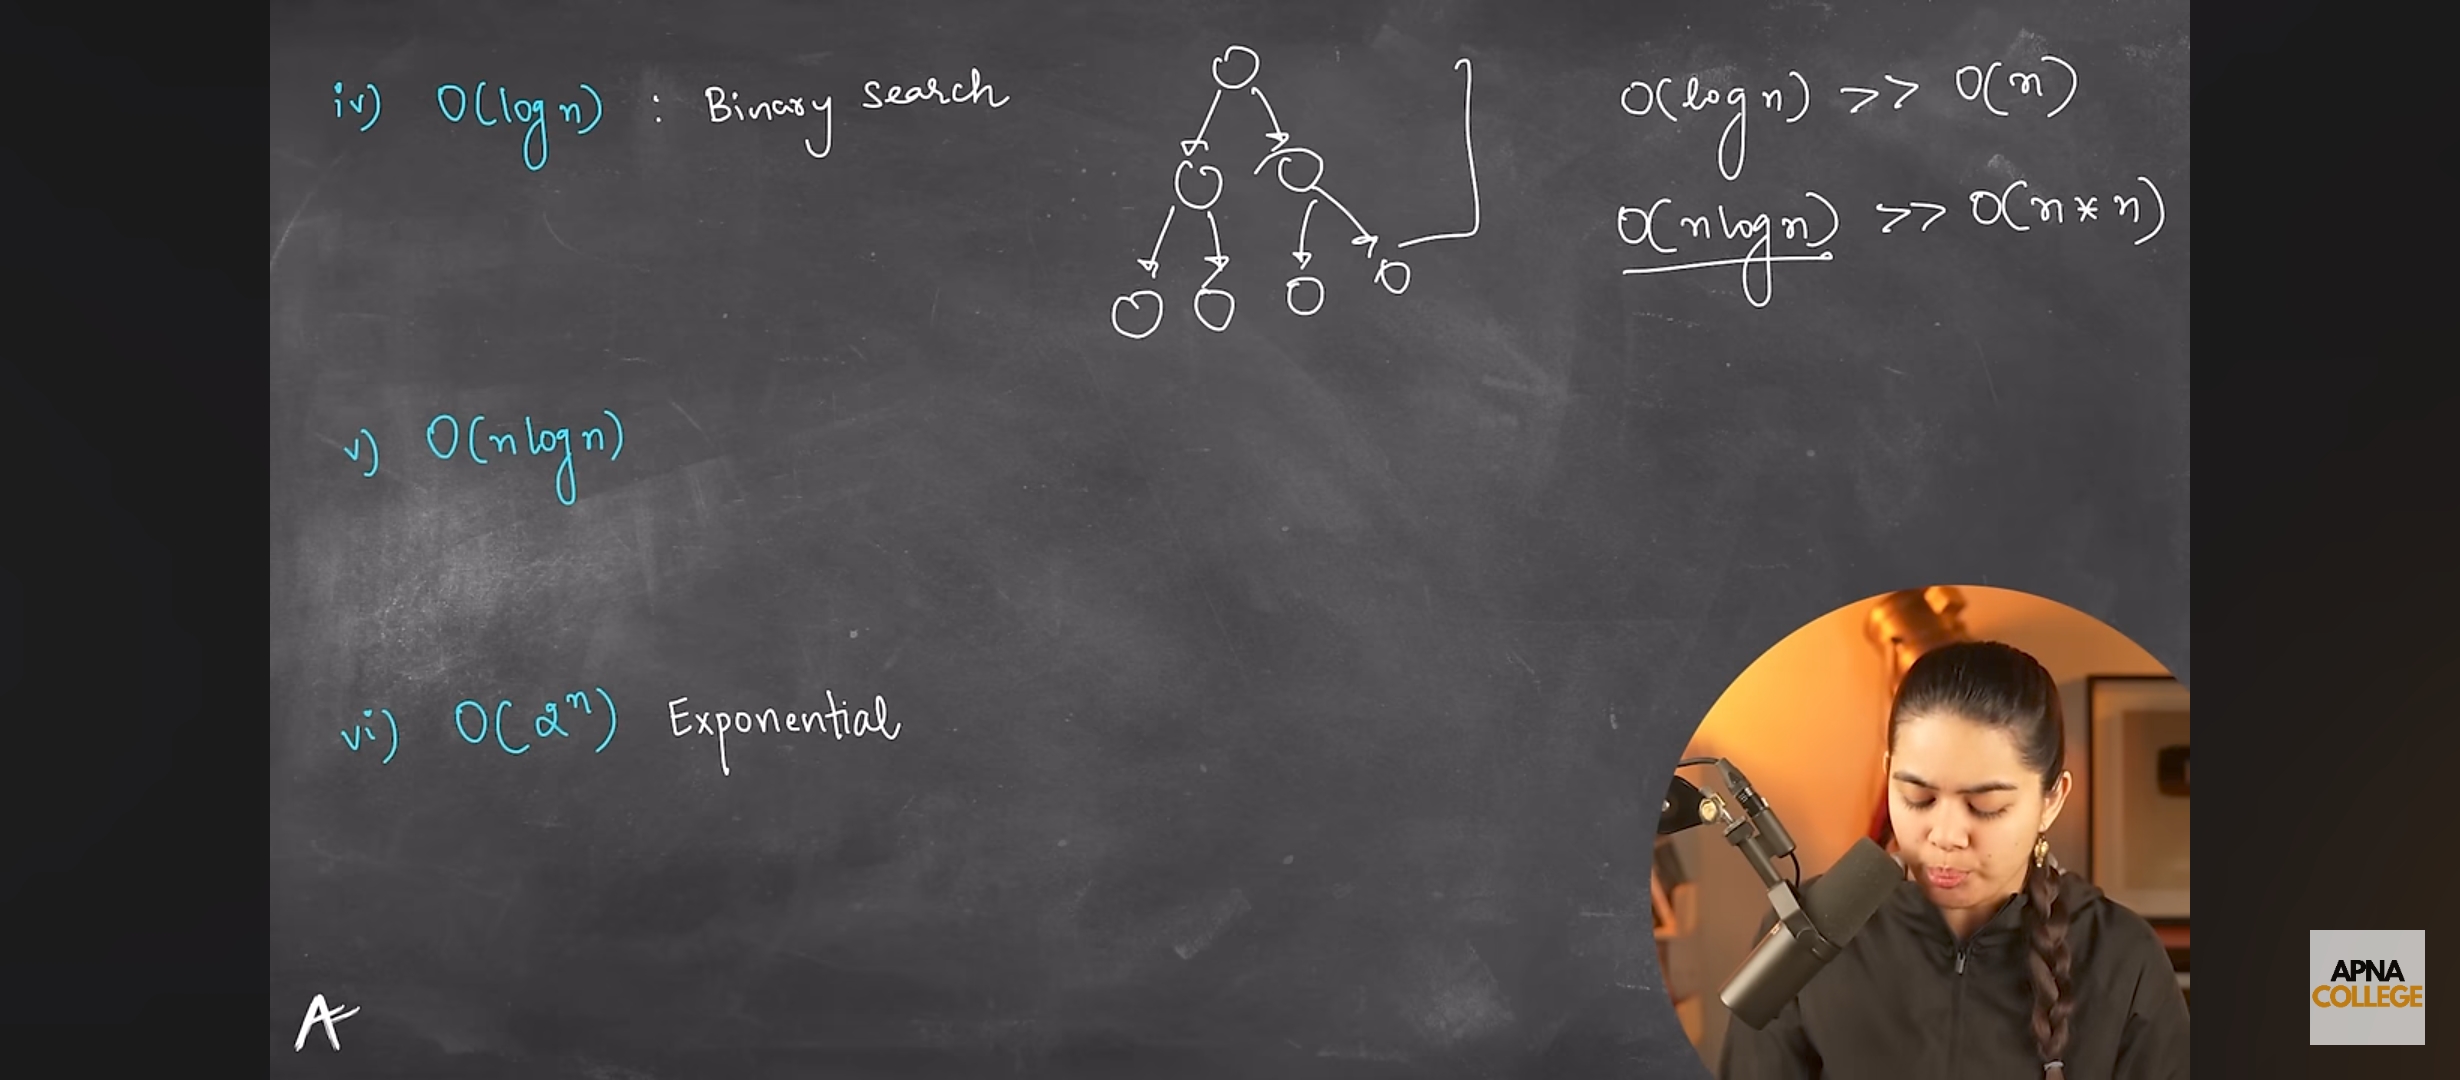 iv) O(log n) : Binary search
O(log n) >> O(n)
O(n log n) >> O(n * n)
v) O(n log n)
vi) O(2ⁿ) Exponential
A
APNA
COLLEGE